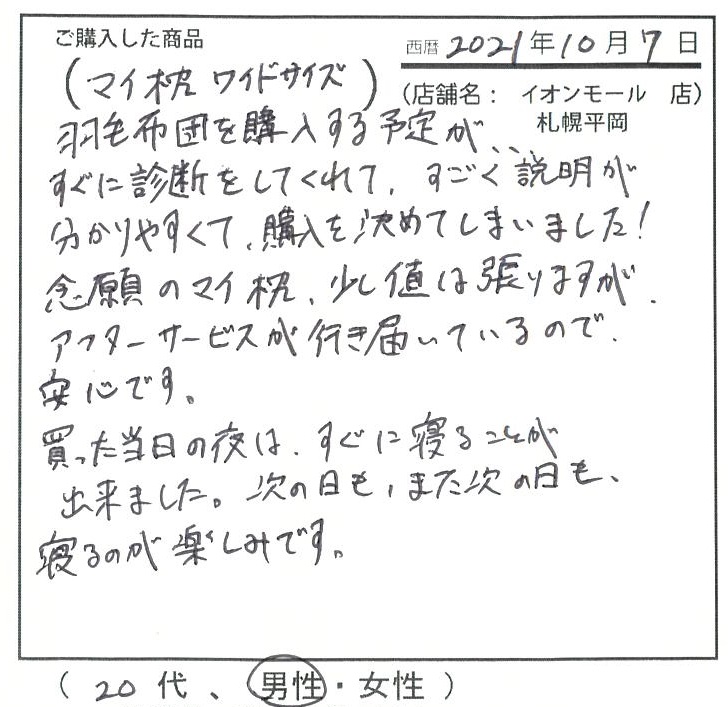 ご購入した商品
西暦 2021年10月7日
(マイ枕 ワイドサイズ)
(店舗名： イオンモール 店)
札幌平岡
羽毛布団を購入する予定が、、、
すぐに診断をしてくれて、すごく説明が
分かりやすくて、購入を決めてしまいました!
念願のマイ枕、少し値は張りますが、
アフターサービスが行き届いているので、
安心です。
買った当日の夜は、すぐに寝ることが
出来ました。次の日も、また次の日も、
寝るのが楽しみです。
( 20代、男性・女性 )